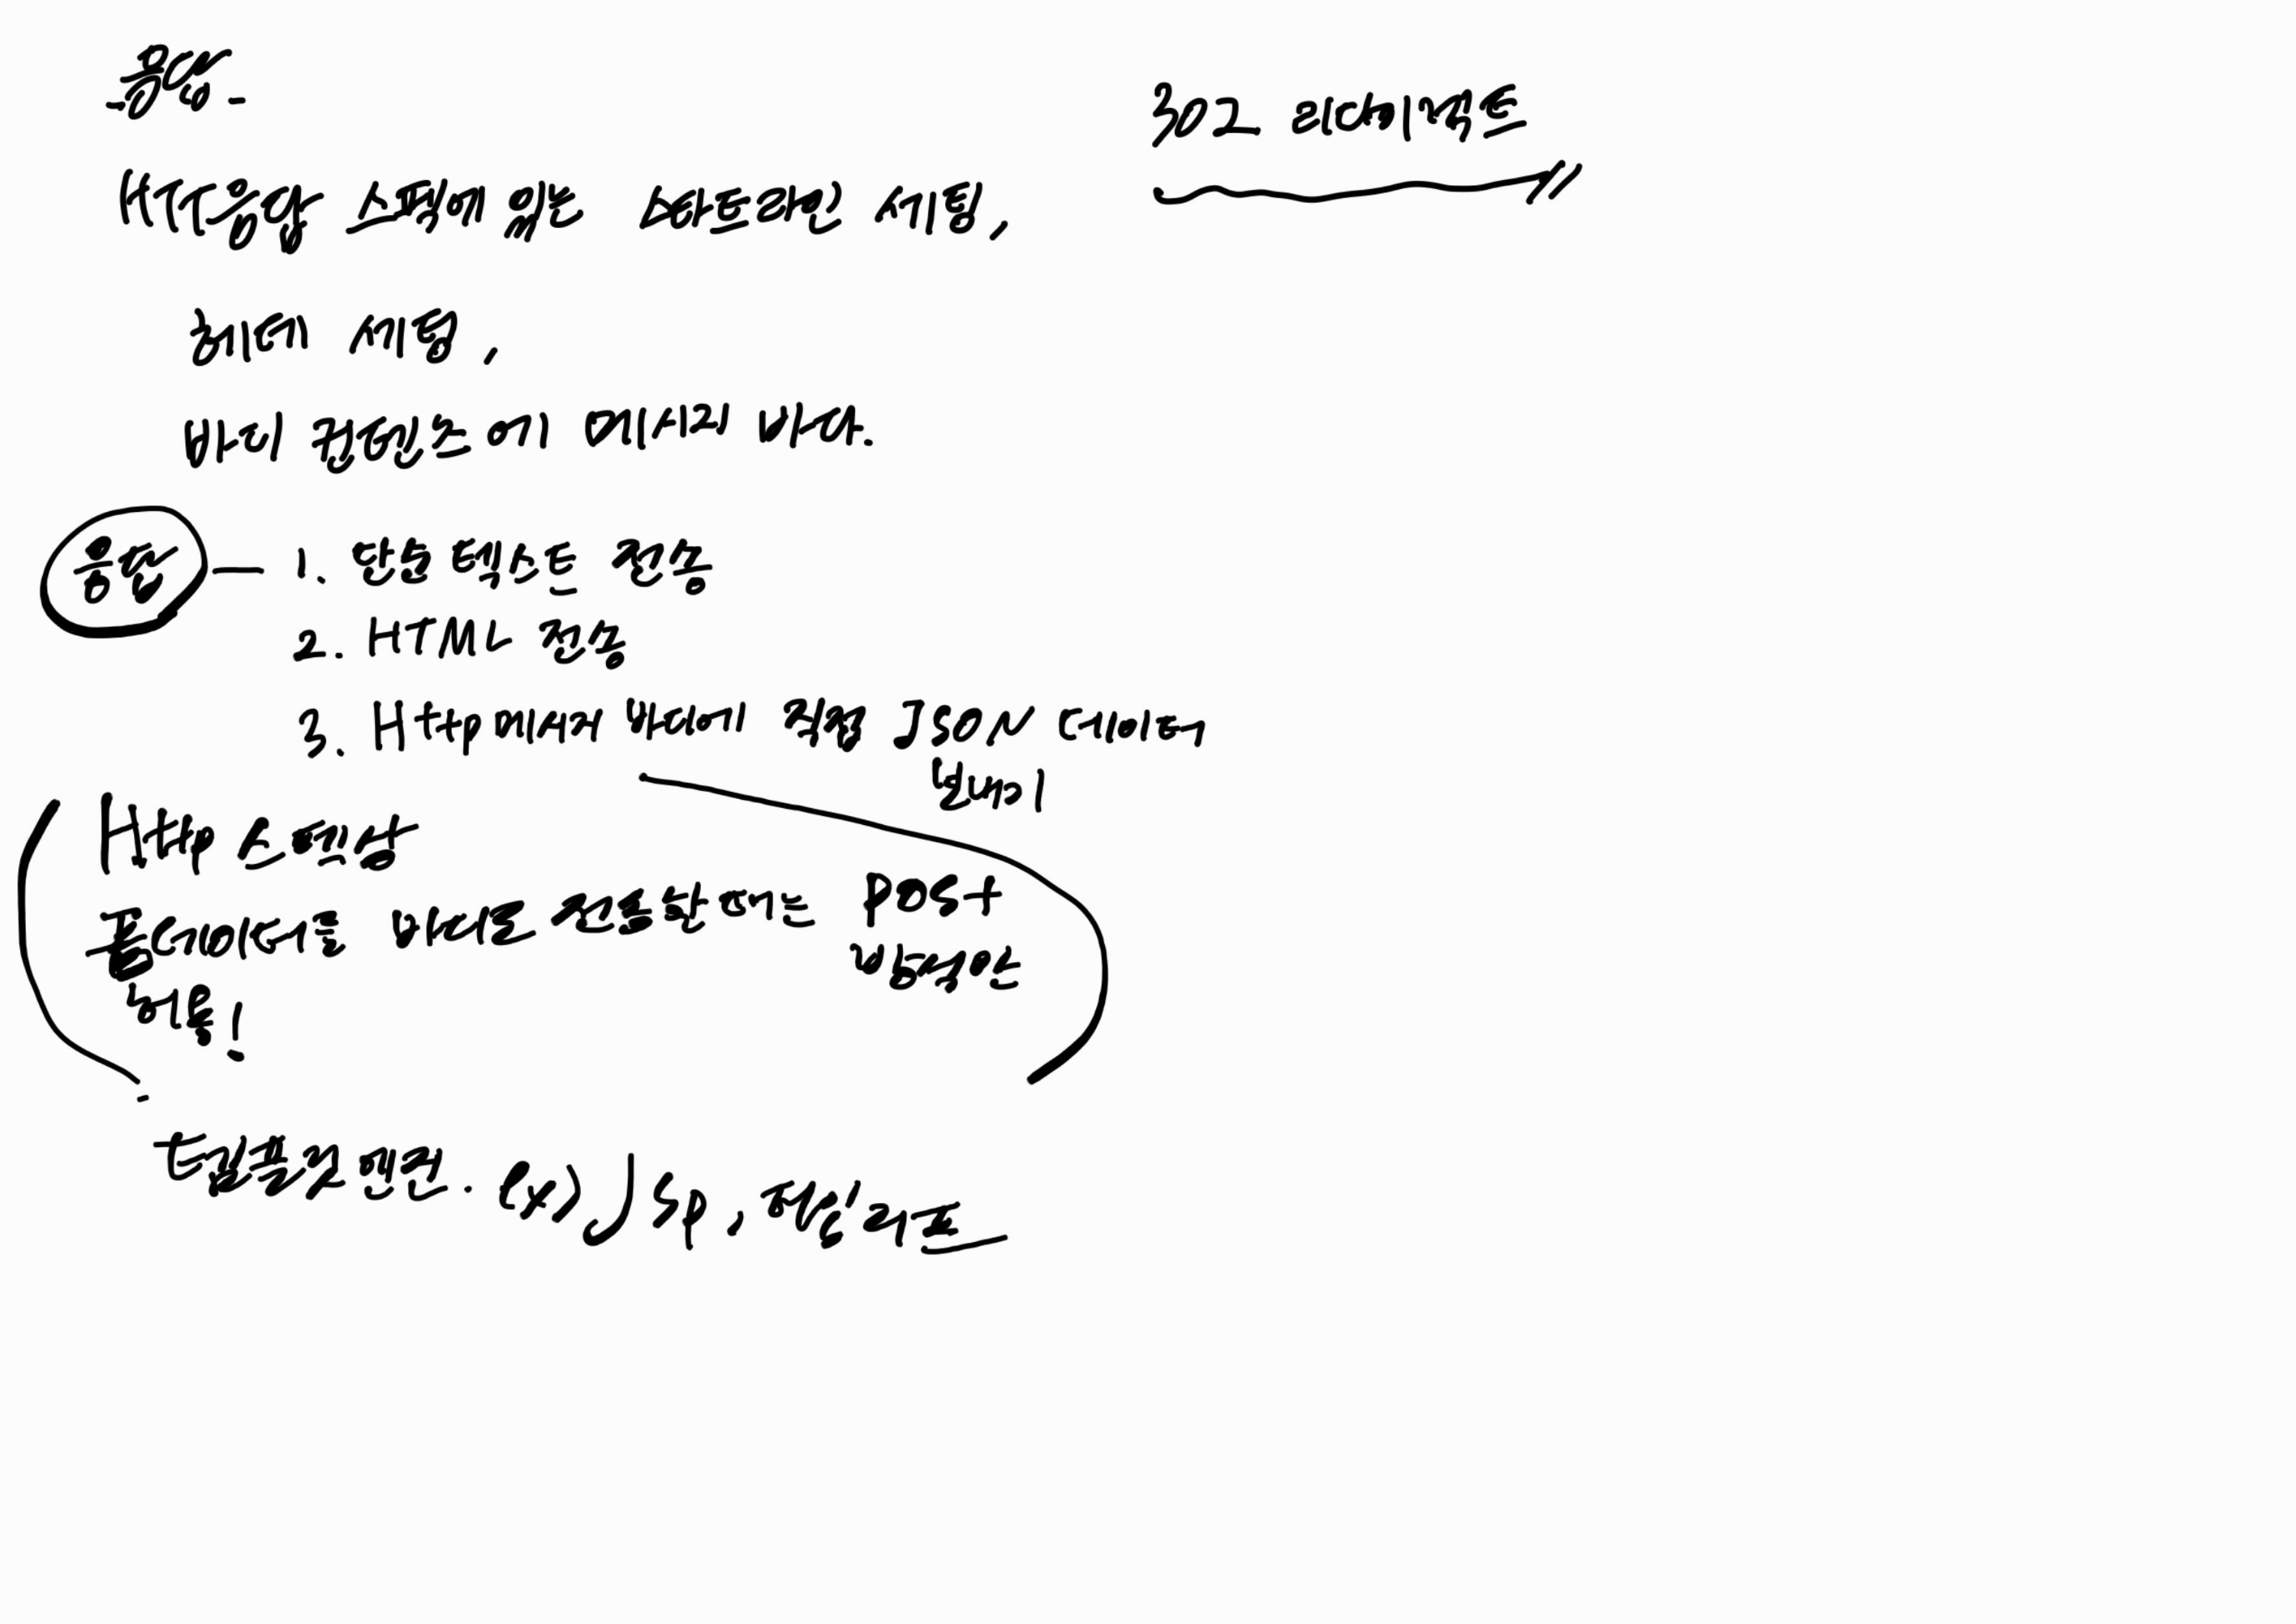 응답
302 리다이렉트
HTT응답 스펙에 있는 스타트라인 세팅,
헤더 세팅,
바디 컨텐츠에 메시지 바다.
응답 — 1. 단순 텍스트 전송
2. HTML 전송
3. Http메시지 바디에 직접 JSON 데이터
보내기
Http 스펙상
폼데이터를 바디로 전송할때는 POSt
방식만
허용!
템플릿엔진. ex) JSP, 타임리프